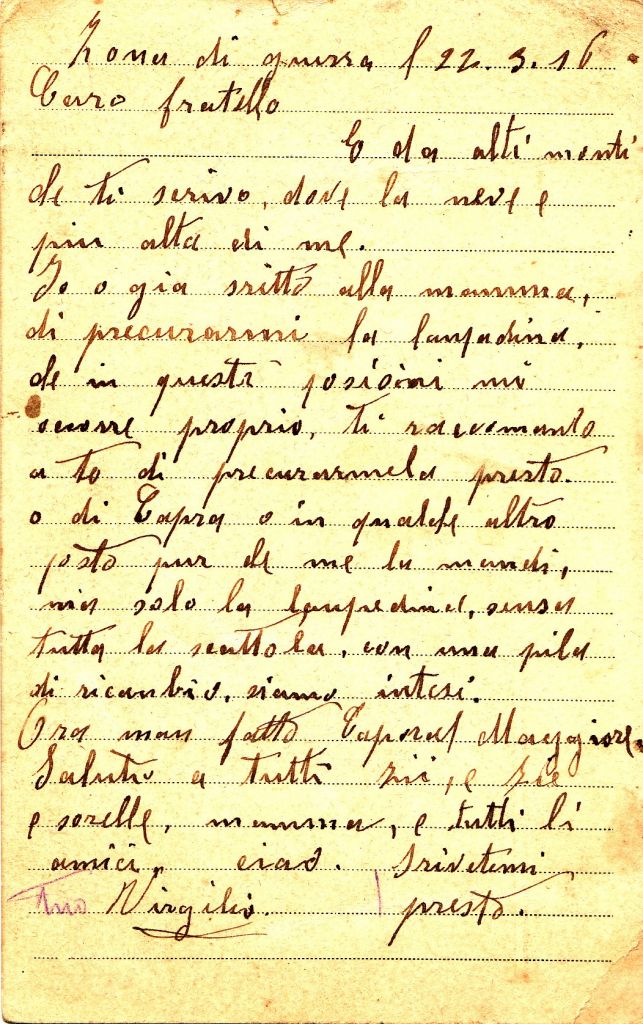 Zona di guerra l 22.3.16
Caro fratello
E da alti monti
che ti scrivo, dove la neve e
piu alta di me.
Io o gia sritto alla mamma,
di precurarmi la lanpadina,
che in questi posisioni mi
ocorre proprio, ti racomanto
a to di precurarmela presto.
o di Capra o in qualche altro
posto pur che me la mandi,
ma solo la lanpedina, sensa
tutta la scattola, con una pila
di ricanbio, siamo intesi.
Ora man fatto Caporal Maggiore.
Saluto a tutti zii, e zie
e sorelle, mamma, e tutti li
amici, ciao. Srivetemi
Tuo Virgilio. presto.